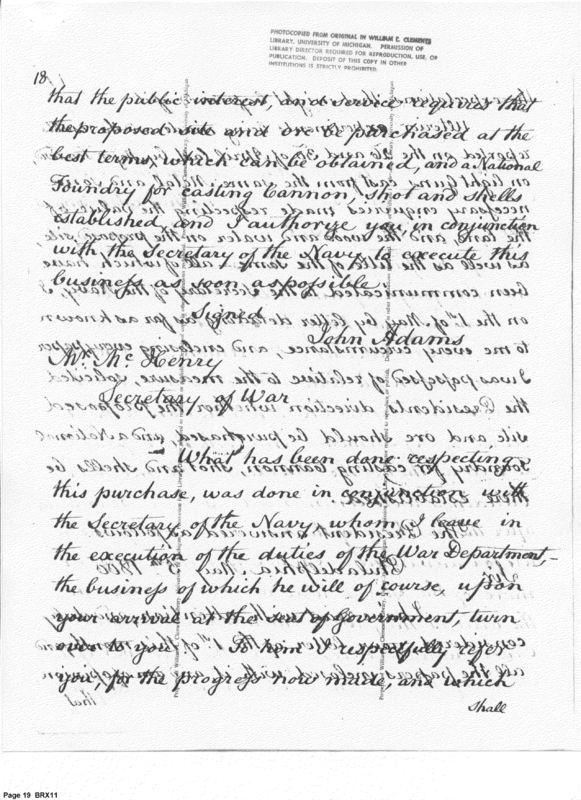 PHOTOCOPIED FROM ORIGINAL IN WILLIAM L. CLEMENTS
LIBRARY, UNIVERSITY OF MICHIGAN. PERMISSION OF
LIBRARY DIRECTOR REQUIRED FOR REPRODUCTION, USE, OR
PUBLICATION. DEPOSIT OF THIS COPY IN OTHER
INSTITUTIONS IS STRICTLY PROHIBITED.
18
that the public interest, and service require that
the proposed site and ore be purchased at the
best terms, which can be obtained, and a National
Foundry for casting Cannon, shot and shells
established, and I authorize you, in conjunction
with the Secretary of the Navy, to execute this
business as soon as possible.
Signed
John Adams
Mr. McHenry
Secretary of War
What has been done respecting
this purchase, was done in conjunction with
the Secretary of the Navy, whom I leave in
the execution of the duties of the War Department,
the business of which he will of course, upon
your arrival at the seat of Government, turn
over to you. To him I respectfully refer
you, for the progress now made, and which
shall
Page 19 BRX11